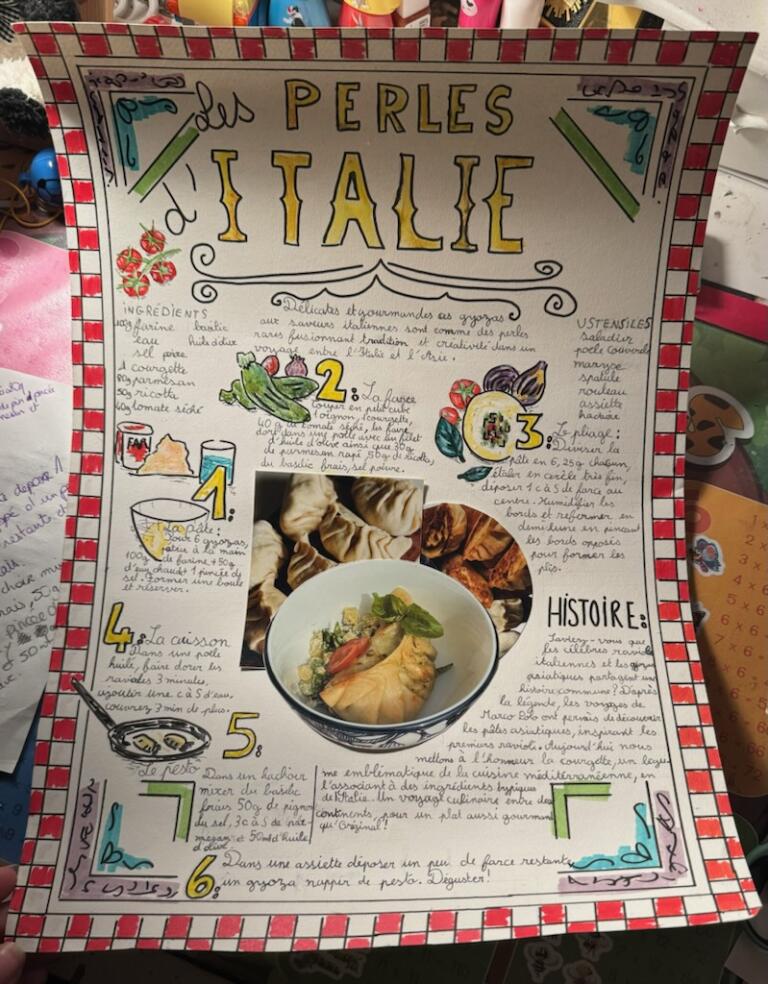 Les PERLES
d'ITALIE
INGRÉDIENTS
100g farine basilic
eau huile d'olive
sel poivre
1 courgette
80g parmesan
50g ricotta
40g tomate séché
Délicates et gourmandes ces gyozas
aux saveurs italiennes sont comme des perles
rares fusionnant tradition et créativité dans un
voyage entre l'Italie et l'Asie.
USTENSILES
saladier
poele couvercle
maryse
spatule
rouleau
assiette
hachoir
1:
La pâte:
Pour 6 gyozas,
à la main
100g de farine + 50g
d'eau chaude + 1 pincée de
sel. Former une boule
et réserver.
2: La farce
couper en petit cube
1 oignon, 1 courgette,
40 g de tomate séché, les faire
dorir dans une poele avec un filet
d'huile d'olive ainsi que 30g
de parmesan rapé 50g de ricotta,
du basilic frais, sel poivre.
3: Le pliage:
Diviser la
pâte en 6, 25g chacun,
étaler en cercle très fin,
déposer 1 c à S de farce au
centre. Humidifier les
bords et refermer en
demi lune en pinçant
les bords opposés
pour former les
plis.
4: La cuisson
Dans une poele
huilé, faire dorer les
ravioles 3 minutes,
ajouter une c à S d'eau,
couvrez 3 min de plus.
5:
Le pesto
Dans un hachoir
mixer du basilic
frais 50g de pignon
du sel, 3 c à S de par-
mesan et 50ml d'huile
d'olive
HISTOIRE:
Saviez-vous que
les célèbres ravioli
italiennes et les gyozas
asiatiques partagent une
histoire commune? D'après
la légende, les voyages de
Marco Polo ont permis de découvrir
les pâtes asiatiques, inspirant les
premiers ravioli. Aujourd'hui nous
mettons à l'honneur la courgette, un légu-
me emblématique de la cuisine méditerranéenne, en
l'associant à des ingrédients typiques
de l'Italie. Un voyage culinaire entre deux
continents, pour un plat aussi gourmand
qu'original!
6: Dans une assiette déposer un peu de farce restante,
un gyoza nappir de pesto. Déguster!